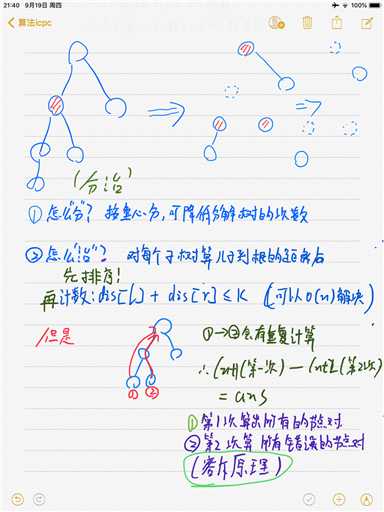 21:40 9月19日 周四
100%
算法icpc
(分治)
① 怎么"分"? 按重心分,可降低分解树的次数
② 怎么"治"? 对每个子树算儿子到根的距离后
先排序!
再计数:dis[l] + dis[r] ≤ K (可以O(n)解决)
但是
① → ② 会有重复计算
∴ (第一次) — (第2次)
= ans
① ②
① 第1次算出所有的节点对
② 第2次算所有错误的节点对
(容斥原理)